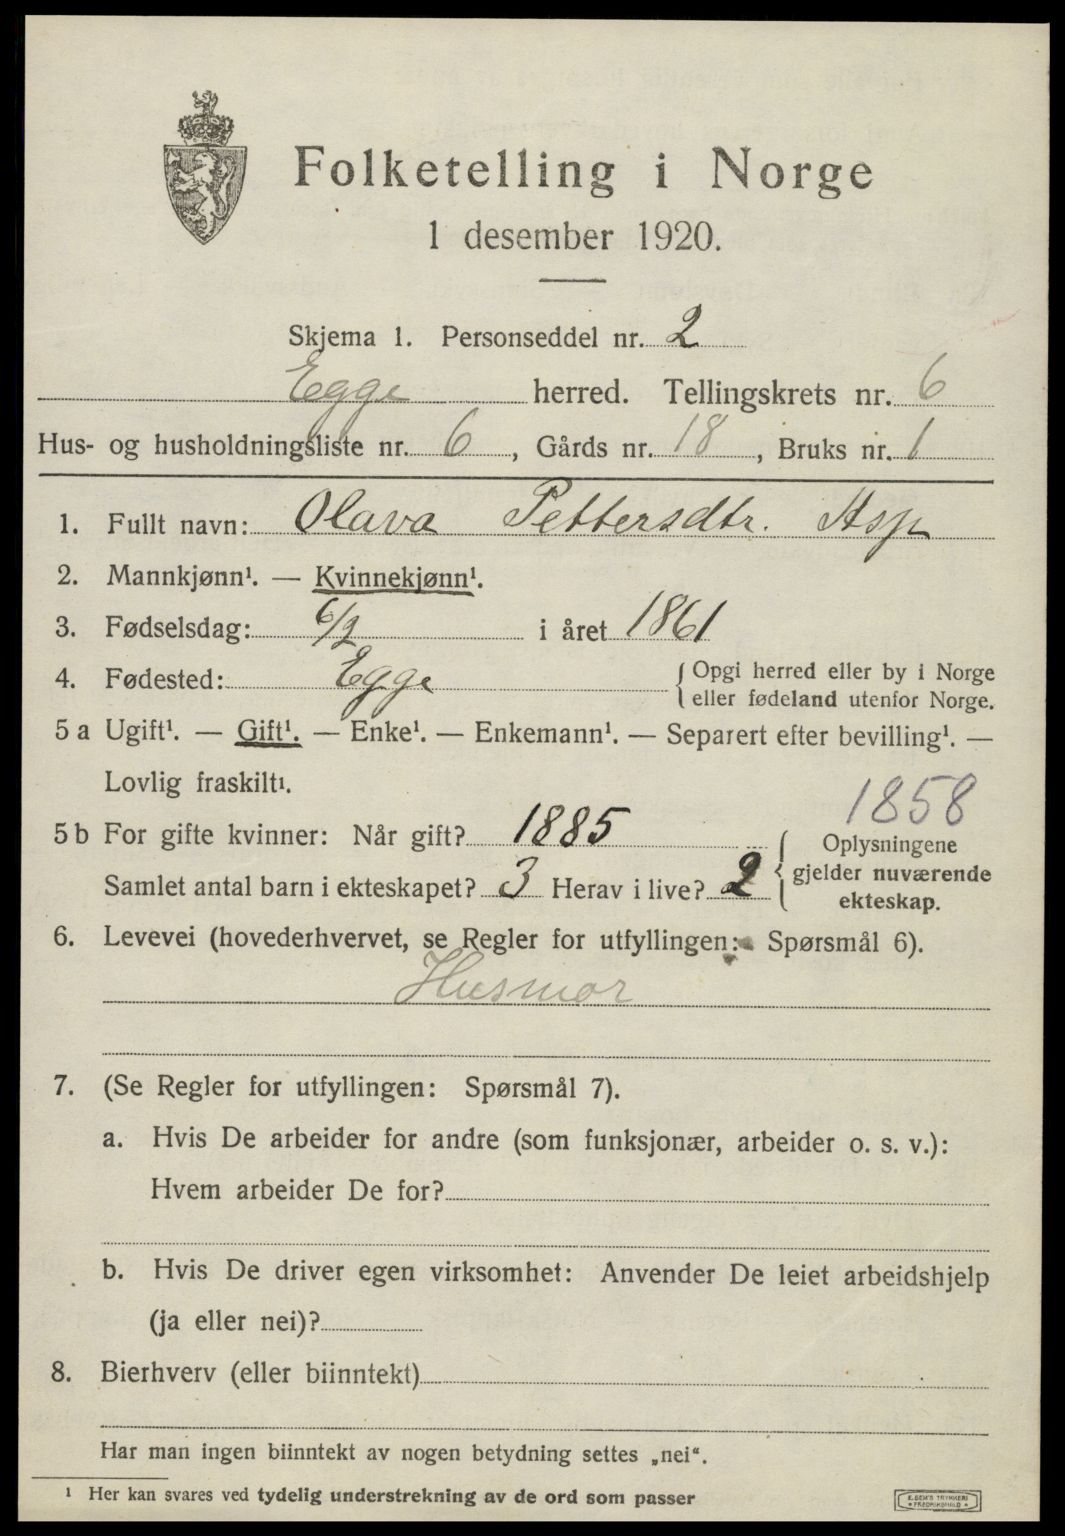 Folketelling i Norge
1 desember 1920.
Skjema 1. Personseddel nr. 2
Egge herred. Tellingskrets nr. 6
Hus- og husholdningsliste nr. 6, Gårds nr. 18, Bruks nr. 1
1. Fullt navn: Olava Pettersdtr. Asp
2. Mannkjønn¹. — Kvinnekjønn¹.
3. Fødselsdag: 6/2 i året 1861
4. Fødested: Egge { Opgi herred eller by i Norge
eller fødeland utenfor Norge.
5 a Ugift¹. — Gift¹. — Enke¹. — Enkemann¹. — Separert efter bevilling¹. —
Lovlig fraskilt¹.
1858
5 b For gifte kvinner: Når gift? 1885
Samlet antal barn i ekteskapet? 3 Herav i live? 2
{ Oplysningene
gjelder nuværende
ekteskap.
6. Levevei (hovederhvervet, se Regler for utfyllingen: Spørsmål 6).
Husmor
7. (Se Regler for utfyllingen: Spørsmål 7).
a. Hvis De arbeider for andre (som funksjonær, arbeider o. s. v.):
Hvem arbeider De for?
b. Hvis De driver egen virksomhet: Anvender De leiet arbeidshjelp
(ja eller nei)?
8. Bierhverv (eller biinntekt)
Har man ingen biinntekt av nogen betydning settes „nei“.
¹ Her kan svares ved tydelig understrekning av de ord som passer
E. SEM'S TRYKKERI
FREDRIKSHALD